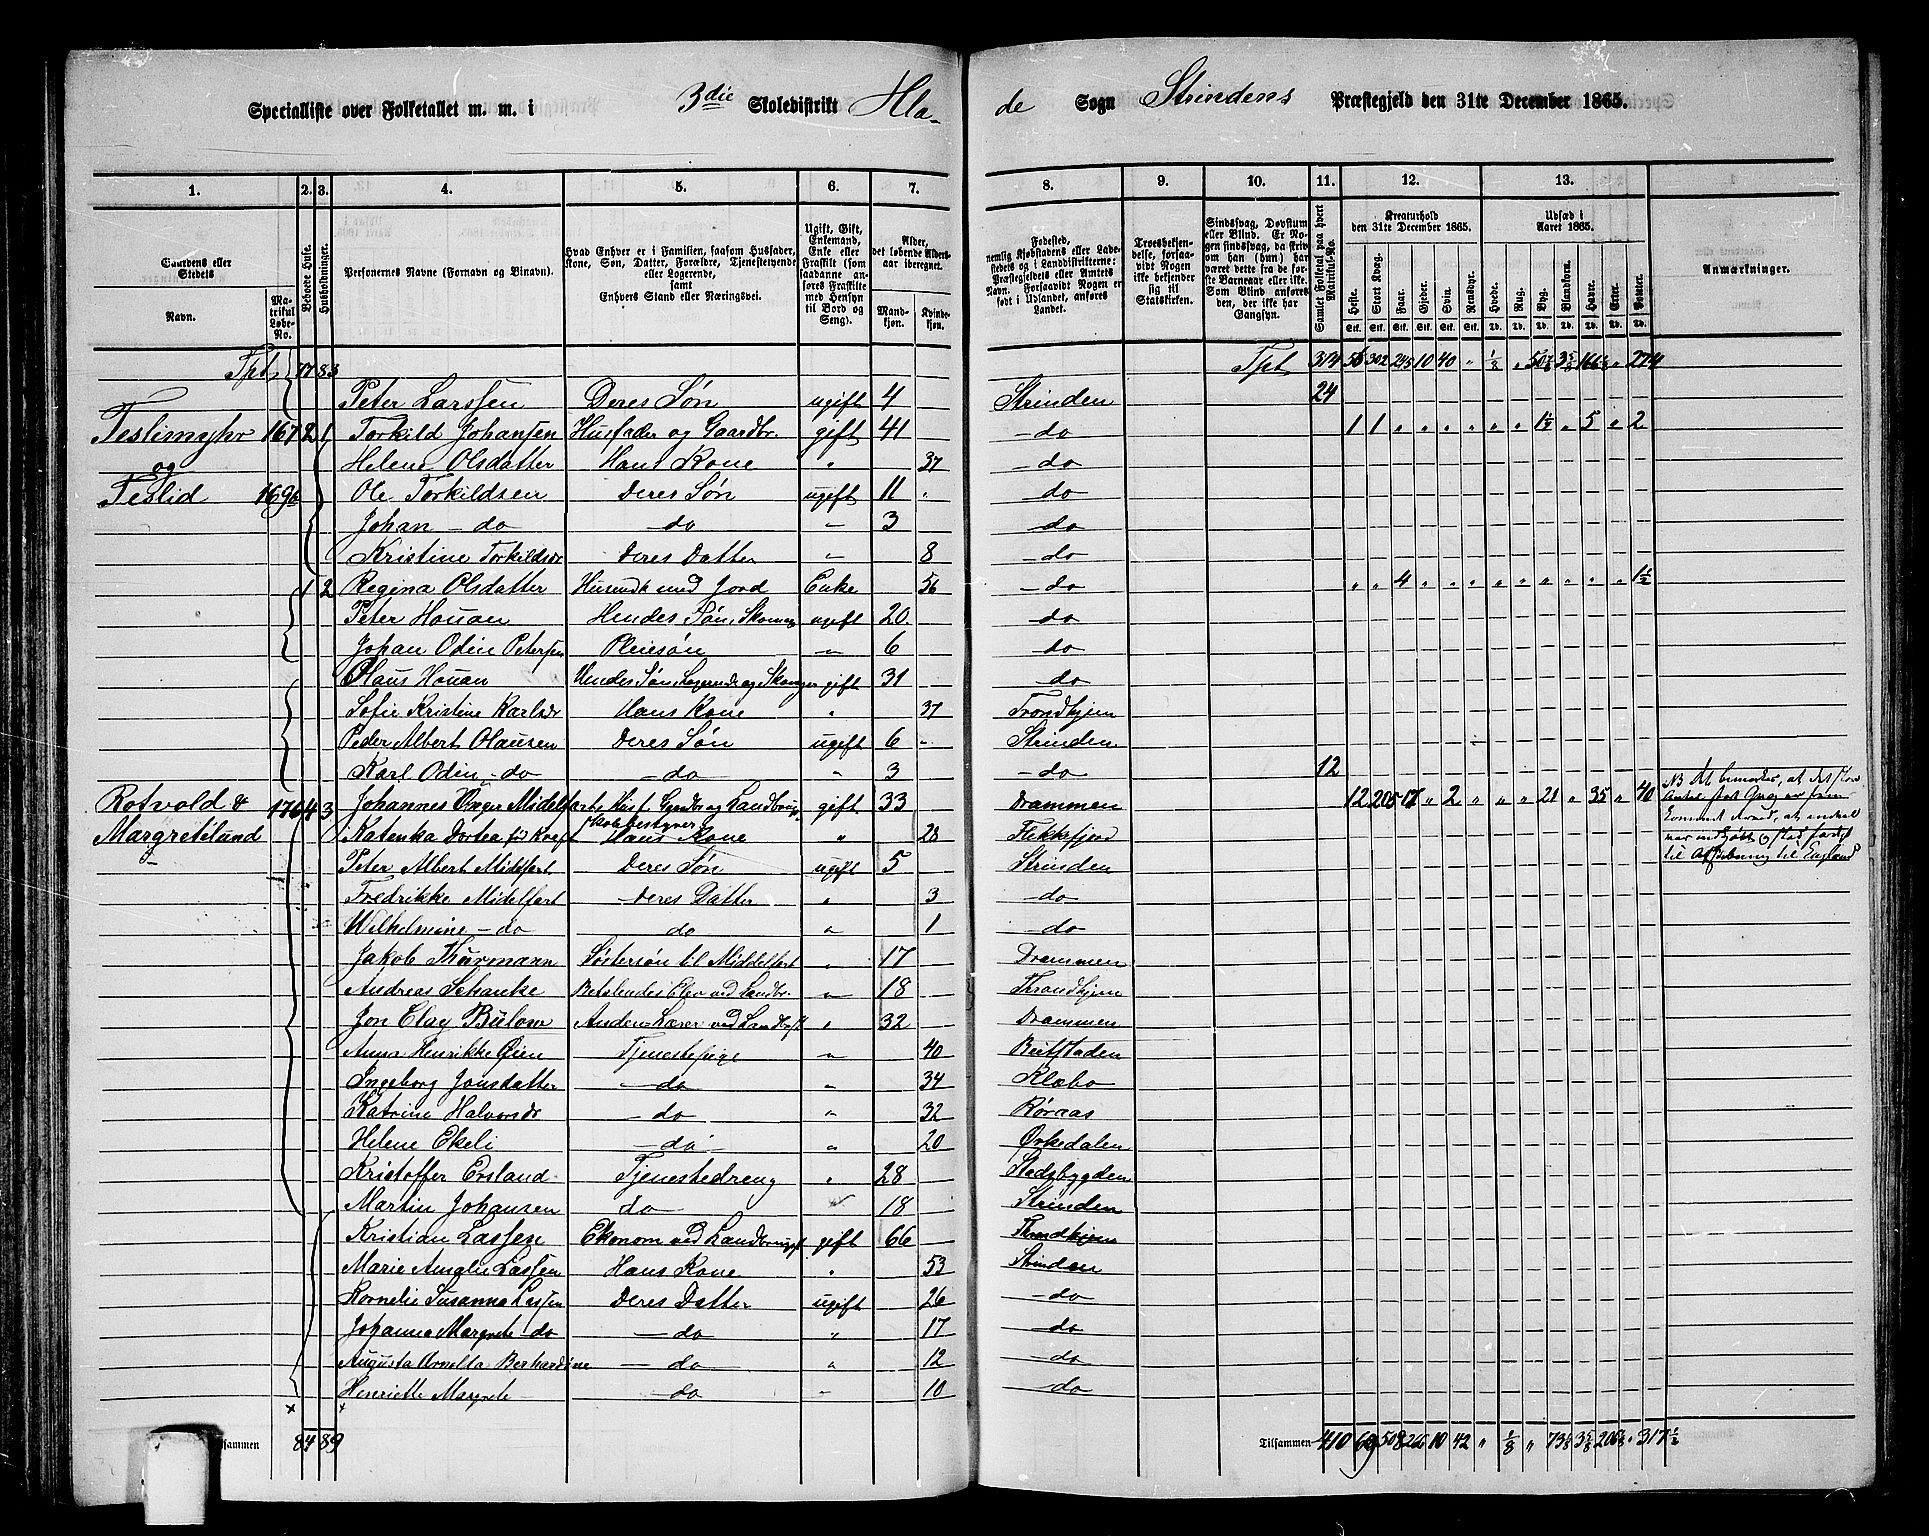 Specialliste over Folketallet m. m. i 3die Skoledistrikt Hla-
de Sogn Strindens Præstegjeld den 31te December 1865.
1. 2. 3. 4. 5. 6. 7. 8. 9. 10. 11. 12. 13.
Gaardens eller Stedets
Navn. Matrikul Løbe-No.
Bebodde Huse.
Husholdninger.
Personernes Navne (Fornavn og Binavn).
Hvad Enhver er i Familien, saasom Husfader, Kone, Søn, Datter, Forældre, Tjenestetyende eller Logerende, samt Enhvers Stand eller Næringsvei.
Ugift, Gift, Enkemand, Enke eller Fraskilt (som saadanne anføres Fraskilte med Hensyn til Bord og Seng).
Alder, det løbende Aldersaar iberegnet.
Mandkjøn. Kvindekjøn.
Fødested, nemlig Kjøbstadens eller Ladestedets og i Landdistrikterne: Præstegjeldets eller Amtets Navn. Forsaavidt Nogen er født i Udlandet, anføres Landet.
Troesbekjendelse, forsaavidt Nogen ikke bekjender sig til Statskirken.
Sindssvag, Døvstum eller Blind. Er Nogen sindssvag, da skrives om han (hun) har været dette fra de første Barneaar eller ikke. Som Blind anføres den, der ikke har Gangsyn.
Samlet Folketal paa hvert Matrikul-No.
Kreaturhold den 31te December 1865.
Heste. Stort Kvæg. Faar. Gjeder. Svin. Rensdyr.
Udsæd i Aaret 1865.
Hvede. Rug. Byg. Blandkorn. Havre. Erter. Poteter.
Stk. Stk. Stk. Stk. Stk. Stk. Td. Td. Td. Td. Td. Td. Td.
Anmærkninger.
Tpt. 77 83 Tpt 374 56 302 245 10 40 " 1/8 " 274
Peter Larssen Deres Søn ugift 4 Strinden 24
Teslimyhr 167 2 1 Torkild Johansen Husfader og Gaardbr. gift 41 - do 1 1 " " " " " " " 5 " 2
og Helene Olsdatter Hans Kone " 37 - do
Teslid 169b Ole Torkildsen Deres Søn ugift 11 - do
Johan - do - do " 3 - do
Kristine Torkildsdr Deres Datter " 8 - do
1 2 Regina Olsdatter Husmdk med Jord Enke 56 - do " " 4 " " " " " " " " " 1 1/2
Peter Houan Hendes Søn, Skomag ugift 20 do
Johan Odin Petersen Pleiesøn " 6 do
Olaus Houan Hendes Søn, Logerende og Skomager gift 31 do
Sofie Kristine Karlsdr Hans Kone " 37 Trondhjem
Peder Albert Olausen Deres Søn ugift 6 Strinden
Karl Odin - do - do " 3 - do 12
Rotvold & 176 4 3 Johannes Unger Midelfart Husf. Gaardbr og Landbrugs- gift 33 Drammen 12 205 17 " 2 " " " 21 " 35 " 40 NB det bemærkes, at det store
skolebestyrer Antal stort Qvæg er frem-
Margretelund Katenka Dortea fød Kraft Hans Kone " 28 Flekkefjord
Peter Albert Midelfart Deres Søn ugift 5 Strinden til England
Fredrikke Midelfart Deres Datter " 3 - do
Wilhelmine - do do " 1 - do
Jakob Thurmann Søstersøn til Middelfart " 17 Drammen
Andreas Schanke Betalendes Elev ved Landbr. " 18 Throndhjem
Jon Elay Bülow Anden Lærer ved Landbrsk. " 32 Drammen
Anna Henrikke Øien Tjenestepige " 40 Beitstaden
Ingeborg Jonsdatter - do " 34 Klæbo
Katrine Halvorsdr - do " 32 Røraas
Helene Ekeli - do " 20 Ørkedalen
Kristoffer Ersland Tjenestedreng " 28 Stadsbygden
Martin Johansen do 18 Strinden
Kristian Lassen Ekonom ved Landbrugsk gift 66 Throndhjem
Marie Amalie Lassen Hans Kone " 53 Strinden
Kornelie Susanna Lassen Deres Datter ugift 26 - do
Johanna Margrete - do - do " 17 - do
Augusta Arnolta Berhardine - do " 12 - do
Henriette Margrete do " 10 - do
Tilsammen 84 89 Tilsammen 410 69 508 266 10 42 " 1/8 " " 317 1/2